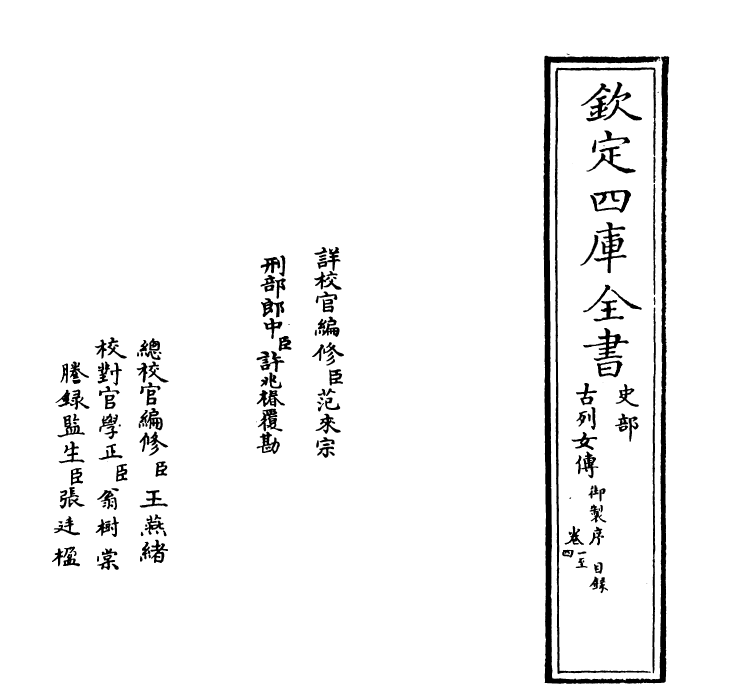 欽定四庫全書
史部
古列女傳
御製序 目錄
卷一至四
詳校官編修臣范來宗
刑部郎中臣許兆椿覆勘
總校官編修臣王燕緒
校對官學正臣翁樹棠
謄録監生臣張廷楹